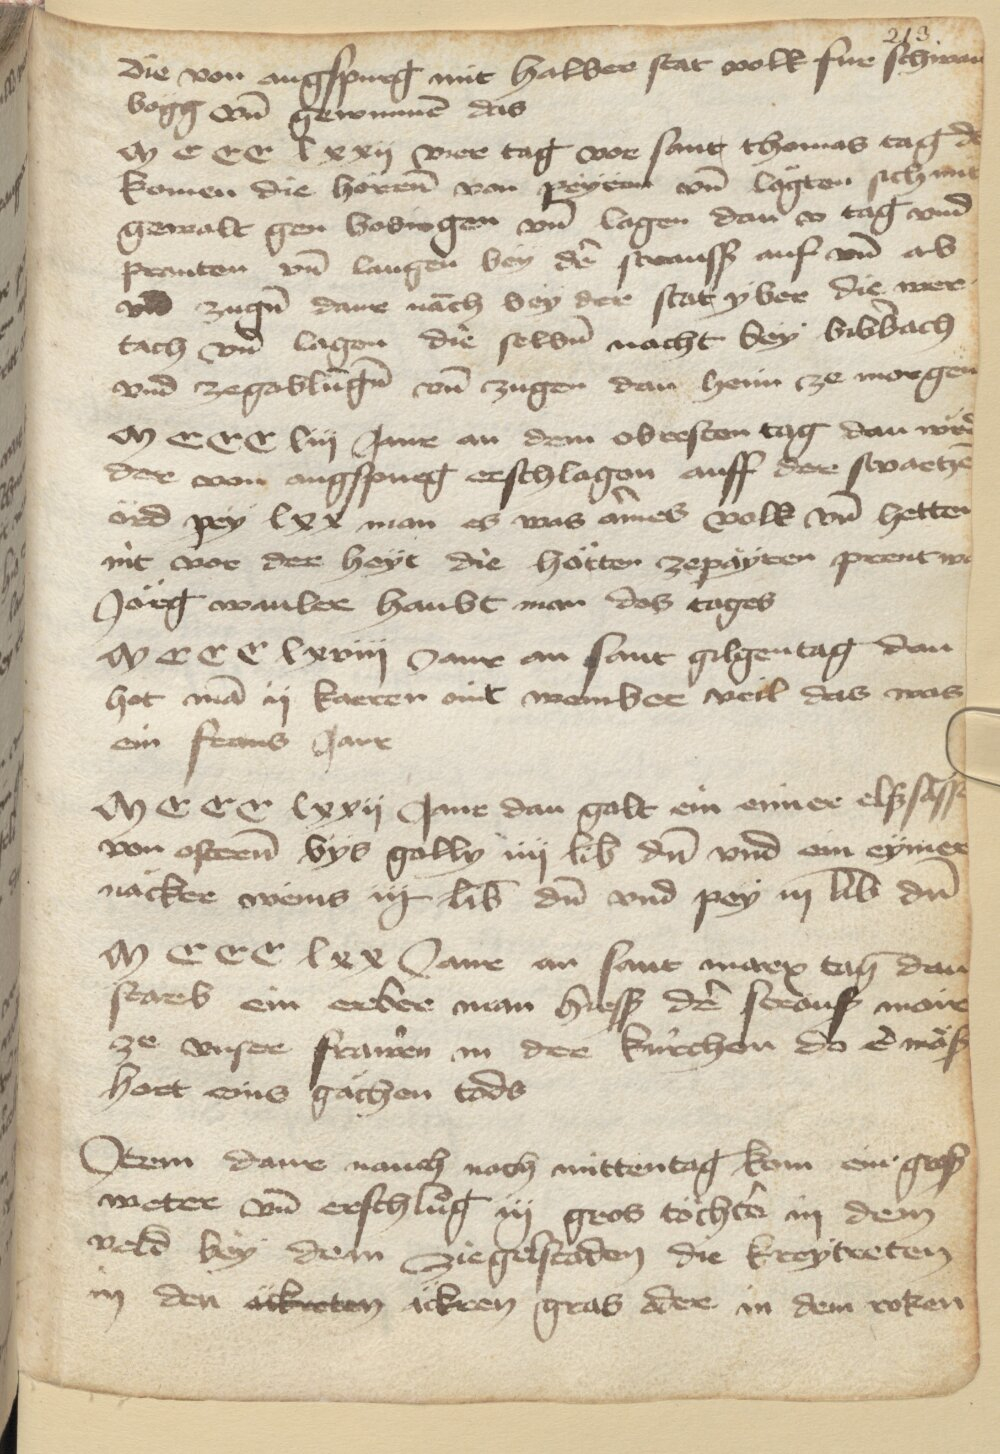 213
die von augspurg mit halber stat volk fur schwan
bogg vñ gewunnē das
M C C C lxxij vier tag vor sant thomas tag do
komen die hörrñ von peyren vñ lägten sich mit
gewalt gen bobingen vñ lagen dan v tag vnd
pranten vñ langen bey dē strauss auf vñ ab
vnd zugñ dar nāch bey der stat yber die wer
tach vñ lagen die selbñ nacht bey bibbach
vnd zegablūgñ vñ zugen dan heim ze morgen
M C C C liij Jare an dem obresten tag dan wurd
der von augspurg erschlagen auff der swartzē
örd pey lxx man es was ames volk vñ hetten
nit vor der heyt die hötten zepäyren prent wa
Jörg wauler haubt man des tages
M C C C lxviiij Jare an sant gilgentag dan
hot mā ij karren mit wember veil das was
ein frans Jare
M C C C lxxij Jare dan galt ein eimer elssässe
von ostern̄ bys gally iiij lib dn̄ vnd ein eymer
näcker weins iij lib dn̄ vnd pey iij lib dn̄
M C C C lxx Jare an sant marx tag dan
starb ein erber man hiess dē straus maire
ze vnser frawen in der kirchen do ē mäss
hort eins gächen tods
Item dare nauch nach mittentag kom ein gross
weter vñ erschlug iij gros töchter in dem
veld bey dem ziegelstaden die kreyteten
in den äckreten äckren gras oder in dem roken